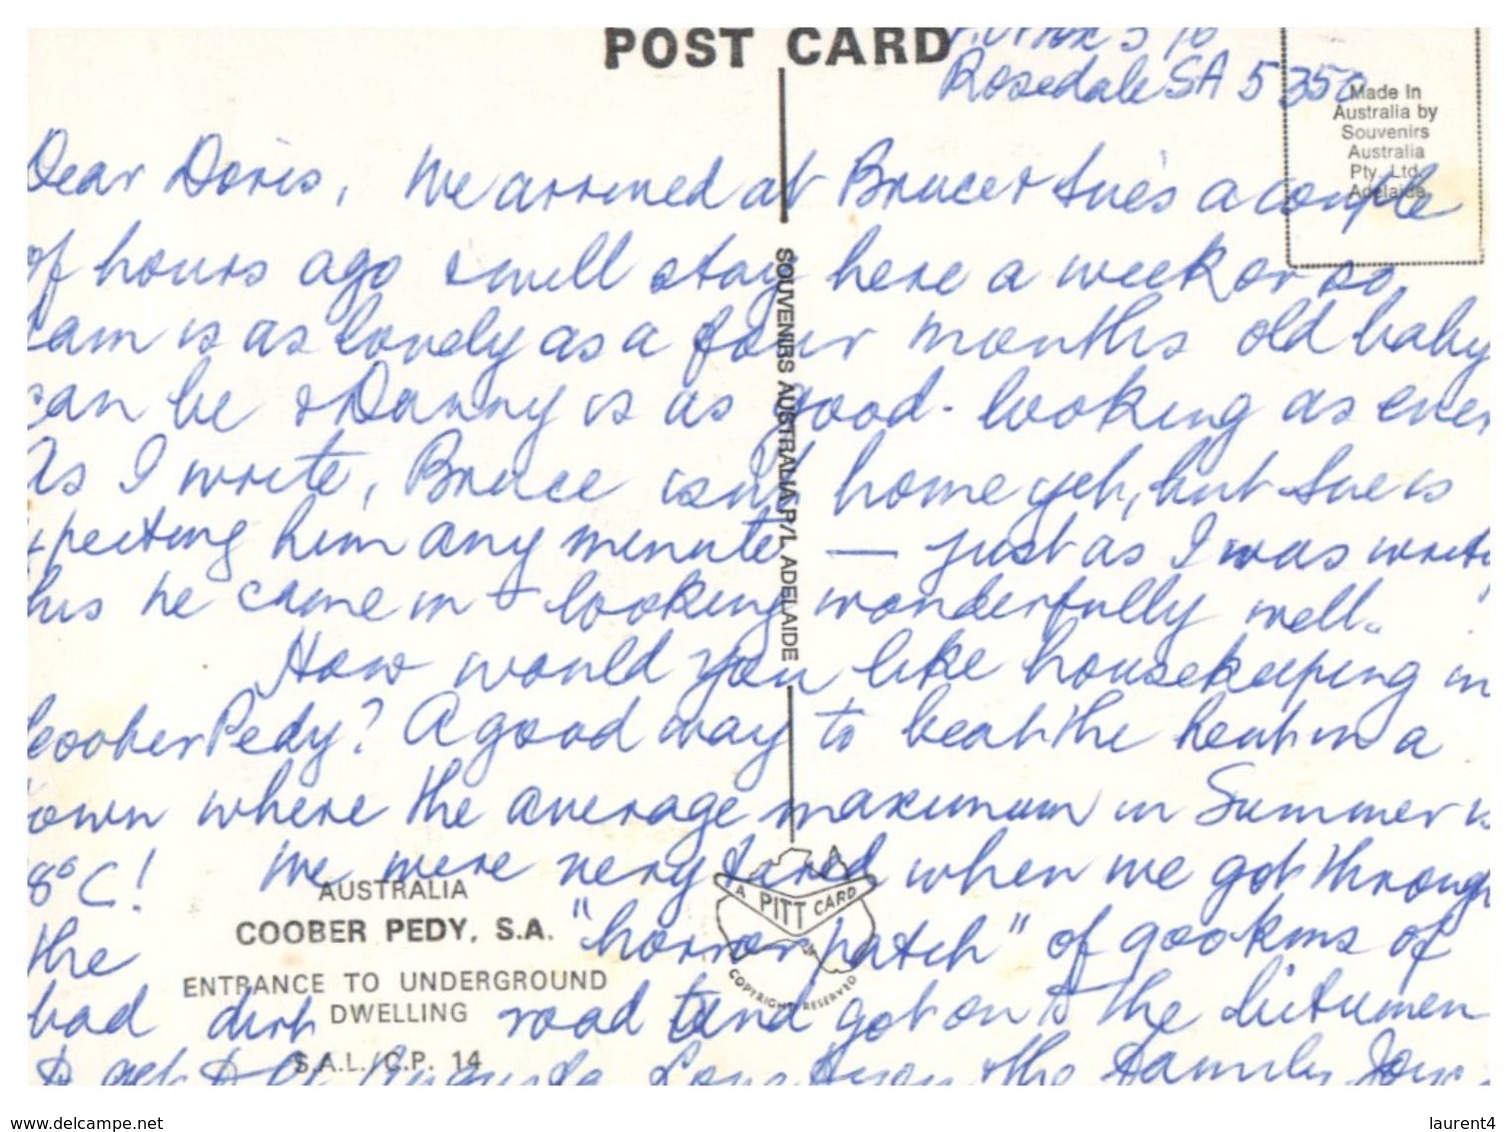 POST CARD
Rosedale SA 5350
Made In
Australia by
Souvenirs
Australia
Pty. Ltd.
Adelaide
Dear Doris, We arrived at Bruce & Sue's a couple
of hours ago & will stay here a week or so.
is as lovely as a four months old baby
can be & Danny is as good-looking as ever
As I write, Bruce isn't home yet, but Sue is
xpecting him any minute — just as I was writi
his he came in & looking wonderfully well.
How would you like housekeeping in
Coober Pedy? A good way to beat the heat in a
own where the average maximum in Summer is
8°C! We were very tired when we got through
the "horror patch" of 900kms of
bad dirt road and got on to the bitumen
to get to Pt Augusta
the Family
SOUVENIRS AUSTRALIA P/L ADELAIDE
A PITT CARD
COPYRIGHT RESERVED
AUSTRALIA
COOBER PEDY, S.A.
ENTRANCE TO UNDERGROUND
DWELLING
S.A.L./C.P. 14
www.delcampe.net
laurent4